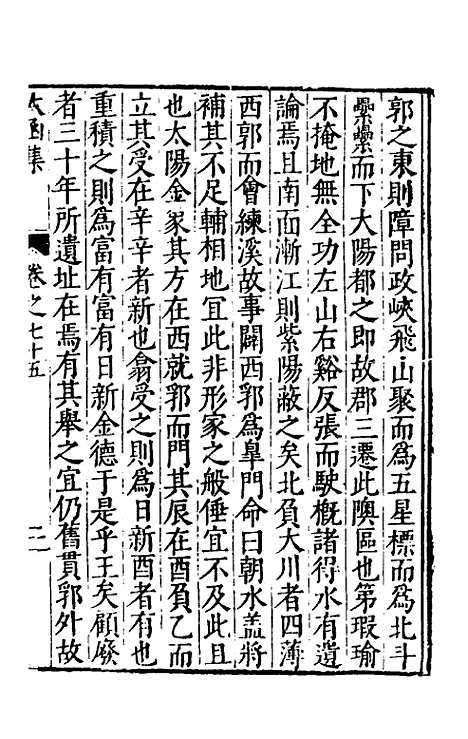 郭之東則障問政峽飛山聚而爲五星標而爲北斗
纍纍而下大陽都之即故郡三遷此隩區也第瑕瑜
不掩地無全功左山右谿反張而駛概諸得水有遺
論焉且南面漸江則紫陽蔽之矣北負大川者四薄
西郭而會練溪故事闢西郭爲臯門命曰朝水蓋將
補其不足輔相地宜此非形家之般倕宜不及此且
也太陽金象其方在西就郭而門其辰在酉負乙而
立其受在辛辛者新也翕受之則爲日新酉者有也
重積之則爲富有富有日新金德于是乎王矣顧廢
者三十年所遺址在焉有其舉之宜仍舊貫郭外故
太函集
卷之七十五
二